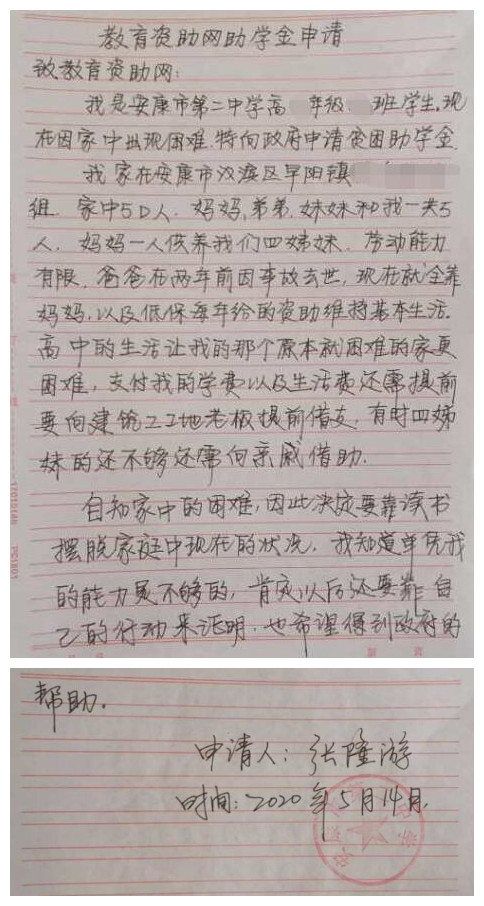 教育资助网助学金申请
致教育资助网:
我是安康市第二中学高 年级 班学生,现
在因家中出现困难.特向政府申请贫困助学金.
我家在安康市汉滨区早阳镇
组.家中5口人.妈妈,弟弟.妹妹和我一共5
人.妈妈一人供养我们四姊妹.劳动能力
有限.爸爸在两年前因事故去世,现在就全靠
妈妈,以及低保每年给的资助维持基本生活.
高中的生活让我的那个原本就困难的家更
困难,支付我的学费以及生活费还需提前
要向建筑工工地老板提前借支.有时四姊
妹的还不够还需向亲戚借助.
自知家中的困难,因此决定要靠读书
摆脱家庭中现在的状况.我知道单凭我
的能力是不够的,肯定以后还要靠自
己的行动来证明.也希望得到政府的
17010148 PC180
帮助.
申请人:张隆游
时间:2020年5月14月.